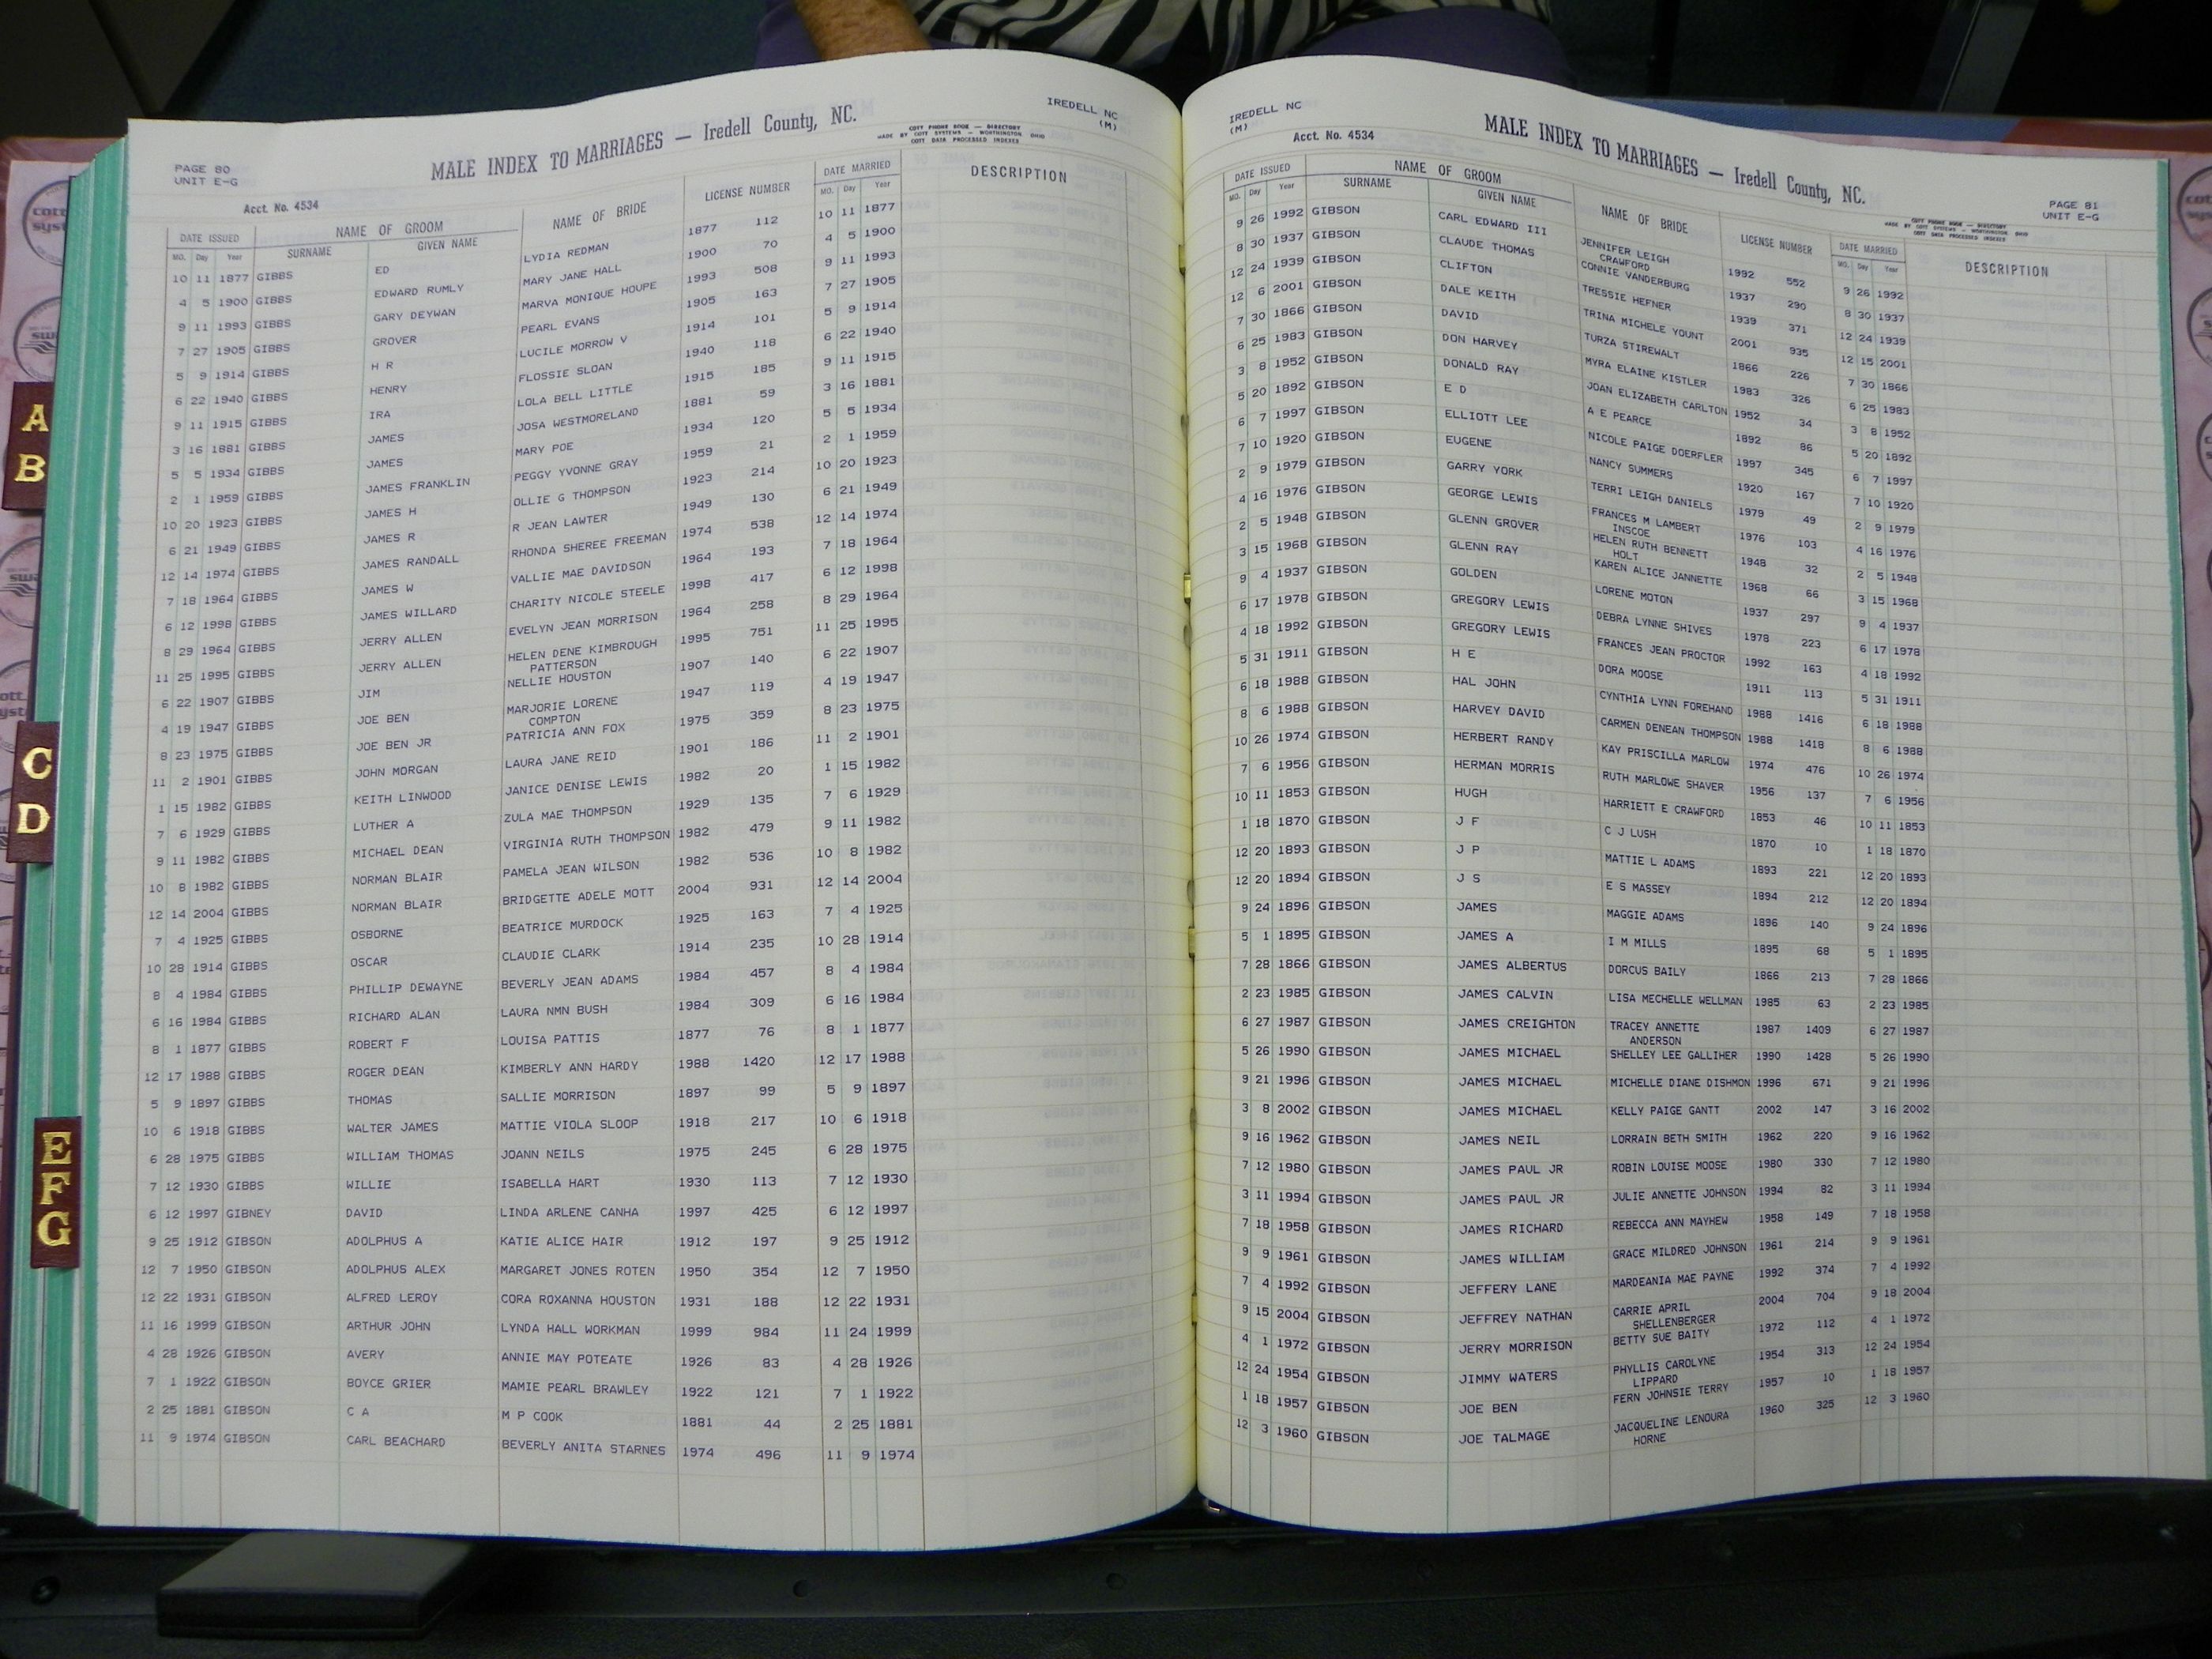 PAGE 80
UNIT E-G
Acct. No. 4534
MALE INDEX TO MARRIAGES — Iredell County, NC.
COTT PHONE BOOK — DIRECTORY
MADE BY COTT SYSTEMS — WORTHINGTON OHIO
COTT DATA PROCESSED INDEXES
IREDELL NC
(M)
DATE ISSUED NAME OF GROOM NAME OF BRIDE LICENSE NUMBER DATE MARRIED DESCRIPTION
MO. Day Year SURNAME GIVEN NAME MO. Day Year
10 11 1877 GIBBS ED LYDIA REDMAN 1877 112 10 11 1877
4 5 1900 GIBBS EDWARD RUMLY MARY JANE HALL 1900 70 4 5 1900
9 11 1993 GIBBS GARY DEYWAN MARVA MONIQUE HOUPE 1993 508 9 11 1993
7 27 1905 GIBBS GROVER PEARL EVANS 1905 163 7 27 1905
5 9 1914 GIBBS H R LUCILE MORROW V 1914 101 5 9 1914
6 22 1940 GIBBS HENRY FLOSSIE SLOAN 1940 118 6 22 1940
9 11 1915 GIBBS IRA LOLA BELL LITTLE 1915 185 9 11 1915
3 16 1881 GIBBS JAMES JOSA WESTMORELAND 1881 59 3 16 1881
5 5 1934 GIBBS JAMES MARY POE 1934 120 5 5 1934
2 1 1959 GIBBS JAMES FRANKLIN PEGGY YVONNE GRAY 1959 21 2 1 1959
10 20 1923 GIBBS JAMES H OLLIE G THOMPSON 1923 214 10 20 1923
6 21 1949 GIBBS JAMES R R JEAN LAWTER 1949 130 6 21 1949
12 14 1974 GIBBS JAMES RANDALL RHONDA SHEREE FREEMAN 1974 538 12 14 1974
7 18 1964 GIBBS JAMES W VALLIE MAE DAVIDSON 1964 193 7 18 1964
6 12 1998 GIBBS JAMES WILLARD CHARITY NICOLE STEELE 1998 417 6 12 1998
8 29 1964 GIBBS JERRY ALLEN EVELYN JEAN MORRISON 1964 258 8 29 1964
11 25 1995 GIBBS JERRY ALLEN HELEN DENE KIMBROUGH 1995 751 11 25 1995
PATTERSON
6 22 1907 GIBBS JIM NELLIE HOUSTON 1907 140 6 22 1907
4 19 1947 GIBBS JOE BEN MARJORIE LORENE 1947 119 4 19 1947
COMPTON
8 23 1975 GIBBS JOE BEN JR PATRICIA ANN FOX 1975 359 8 23 1975
11 2 1901 GIBBS JOHN MORGAN LAURA JANE REID 1901 186 11 2 1901
1 15 1982 GIBBS KEITH LINWOOD JANICE DENISE LEWIS 1982 20 1 15 1982
7 6 1929 GIBBS LUTHER A ZULA MAE THOMPSON 1929 135 7 6 1929
9 11 1982 GIBBS MICHAEL DEAN VIRGINIA RUTH THOMPSON 1982 479 9 11 1982
10 8 1982 GIBBS NORMAN BLAIR PAMELA JEAN WILSON 1982 536 10 8 1982
12 14 2004 GIBBS NORMAN BLAIR BRIDGETTE ADELE MOTT 2004 931 12 14 2004
7 4 1925 GIBBS OSBORNE BEATRICE MURDOCK 1925 163 7 4 1925
10 28 1914 GIBBS OSCAR CLAUDIE CLARK 1914 235 10 28 1914
8 4 1984 GIBBS PHILLIP DEWAYNE BEVERLY JEAN ADAMS 1984 457 8 4 1984
6 16 1984 GIBBS RICHARD ALAN LAURA NMN BUSH 1984 309 6 16 1984
8 1 1877 GIBBS ROBERT F LOUISA PATTIS 1877 76 8 1 1877
12 17 1988 GIBBS ROGER DEAN KIMBERLY ANN HARDY 1988 1420 12 17 1988
5 9 1897 GIBBS THOMAS SALLIE MORRISON 1897 99 5 9 1897
10 6 1918 GIBBS WALTER JAMES MATTIE VIOLA SLOOP 1918 217 10 6 1918
6 28 1975 GIBBS WILLIAM THOMAS JOANN NEILS 1975 245 6 28 1975
7 12 1930 GIBBS WILLIE ISABELLA HART 1930 113 7 12 1930
6 12 1997 GIBNEY DAVID LINDA ARLENE CANHA 1997 425 6 12 1997
9 25 1912 GIBSON ADOLPHUS A KATIE ALICE HAIR 1912 197 9 25 1912
12 7 1950 GIBSON ADOLPHUS ALEX MARGARET JONES ROTEN 1950 354 12 7 1950
12 22 1931 GIBSON ALFRED LEROY CORA ROXANNA HOUSTON 1931 188 12 22 1931
11 16 1999 GIBSON ARTHUR JOHN LYNDA HALL WORKMAN 1999 984 11 24 1999
4 28 1926 GIBSON AVERY ANNIE MAY POTEATE 1926 83 4 28 1926
7 1 1922 GIBSON BOYCE GRIER MAMIE PEARL BRAWLEY 1922 121 7 1 1922
2 25 1881 GIBSON C A M P COOK 1881 44 2 25 1881
11 9 1974 GIBSON CARL BEACHARD BEVERLY ANITA STARNES 1974 496 11 9 1974
IREDELL NC
(M)
Acct. No. 4534
MALE INDEX TO MARRIAGES — Iredell County, NC.
PAGE 81
UNIT E-G
COTT PHONE BOOK — DIRECTORY
MADE BY COTT SYSTEMS — WORTHINGTON OHIO
COTT DATA PROCESSED INDEXES
DATE ISSUED NAME OF GROOM NAME OF BRIDE LICENSE NUMBER DATE MARRIED DESCRIPTION
MO. Day Year SURNAME GIVEN NAME MO. Day Year
9 26 1992 GIBSON CARL EDWARD III JENNIFER LEIGH 1992 552 9 26 1992
CRAWFORD
8 30 1937 GIBSON CLAUDE THOMAS CONNIE VANDERBURG 1937 290 8 30 1937
12 24 1939 GIBSON CLIFTON TRESSIE HEFNER 1939 371 12 24 1939
12 6 2001 GIBSON DALE KEITH TRINA MICHELE YOUNT 2001 935 12 15 2001
7 30 1866 GIBSON DAVID TURZA STIREWALT 1866 226 7 30 1866
6 25 1983 GIBSON DON HARVEY MYRA ELAINE KISTLER 1983 326 6 25 1983
3 8 1952 GIBSON DONALD RAY JOAN ELIZABETH CARLTON 1952 34 3 8 1952
5 20 1892 GIBSON E D A E PEARCE 1892 86 5 20 1892
6 7 1997 GIBSON ELLIOTT LEE NICOLE PAIGE DOERFLER 1997 345 6 7 1997
7 10 1920 GIBSON EUGENE NANCY SUMMERS 1920 167 7 10 1920
2 9 1979 GIBSON GARRY YORK TERRI LEIGH DANIELS 1979 49 2 9 1979
4 16 1976 GIBSON GEORGE LEWIS FRANCES M LAMBERT 1976 103 4 16 1976
INSCOE
2 5 1948 GIBSON GLENN GROVER HELEN RUTH BENNETT 1948 32 2 5 1948
HOLT
3 15 1968 GIBSON GLENN RAY KAREN ALICE JANNETTE 1968 66 3 15 1968
9 4 1937 GIBSON GOLDEN LORENE MOTON 1937 297 9 4 1937
6 17 1978 GIBSON GREGORY LEWIS DEBRA LYNNE SHIVES 1978 223 6 17 1978
4 18 1992 GIBSON GREGORY LEWIS FRANCES JEAN PROCTOR 1992 163 4 18 1992
5 31 1911 GIBSON H E DORA MOOSE 1911 113 5 31 1911
6 18 1988 GIBSON HAL JOHN CYNTHIA LYNN FOREHAND 1988 1416 6 18 1988
8 6 1988 GIBSON HARVEY DAVID CARMEN DENEAN THOMPSON 1988 1418 8 6 1988
10 26 1974 GIBSON HERBERT RANDY KAY PRISCILLA MARLOW 1974 476 10 26 1974
7 6 1956 GIBSON HERMAN MORRIS RUTH MARLOWE SHAVER 1956 137 7 6 1956
10 11 1853 GIBSON HUGH HARRIETT E CRAWFORD 1853 46 10 11 1853
1 18 1870 GIBSON J F C J LUSH 1870 10 1 18 1870
12 20 1893 GIBSON J P MATTIE L ADAMS 1893 221 12 20 1893
12 20 1894 GIBSON J S E S MASSEY 1894 212 12 20 1894
9 24 1896 GIBSON JAMES MAGGIE ADAMS 1896 140 9 24 1896
5 1 1895 GIBSON JAMES A I M MILLS 1895 68 5 1 1895
7 28 1866 GIBSON JAMES ALBERTUS DORCUS BAILY 1866 213 7 28 1866
2 23 1985 GIBSON JAMES CALVIN LISA MECHELLE WELLMAN 1985 63 2 23 1985
6 27 1987 GIBSON JAMES CREIGHTON TRACEY ANNETTE 1987 1409 6 27 1987
ANDERSON
5 26 1990 GIBSON JAMES MICHAEL SHELLEY LEE GALLIHER 1990 1428 5 26 1990
9 21 1996 GIBSON JAMES MICHAEL MICHELLE DIANE DISHMON 1996 671 9 21 1996
3 8 2002 GIBSON JAMES MICHAEL KELLY PAIGE GANTT 2002 147 3 16 2002
9 16 1962 GIBSON JAMES NEIL LORRAIN BETH SMITH 1962 220 9 16 1962
7 12 1980 GIBSON JAMES PAUL JR ROBIN LOUISE MOOSE 1980 330 7 12 1980
3 11 1994 GIBSON JAMES PAUL JR JULIE ANNETTE JOHNSON 1994 82 3 11 1994
7 18 1958 GIBSON JAMES RICHARD REBECCA ANN MAYHEW 1958 149 7 18 1958
9 9 1961 GIBSON JAMES WILLIAM GRACE MILDRED JOHNSON 1961 214 9 9 1961
7 4 1992 GIBSON JEFFERY LANE MARDEANIA MAE PAYNE 1992 374 7 4 1992
9 15 2004 GIBSON JEFFREY NATHAN CARRIE APRIL 2004 704 9 18 2004
SHELLENBERGER
4 1 1972 GIBSON JERRY MORRISON BETTY SUE BAITY 1972 112 4 1 1972
12 24 1954 GIBSON JIMMY WATERS PHYLLIS CAROLYNE 1954 313 12 24 1954
LIPPARD
1 18 1957 GIBSON JOE BEN FERN JOHNSIE TERRY 1957 10 1 18 1957
12 3 1960 GIBSON JOE TALMAGE JACQUELINE LENOURA 1960 325 12 3 1960
HORNE
A
B
C
D
E
F
G